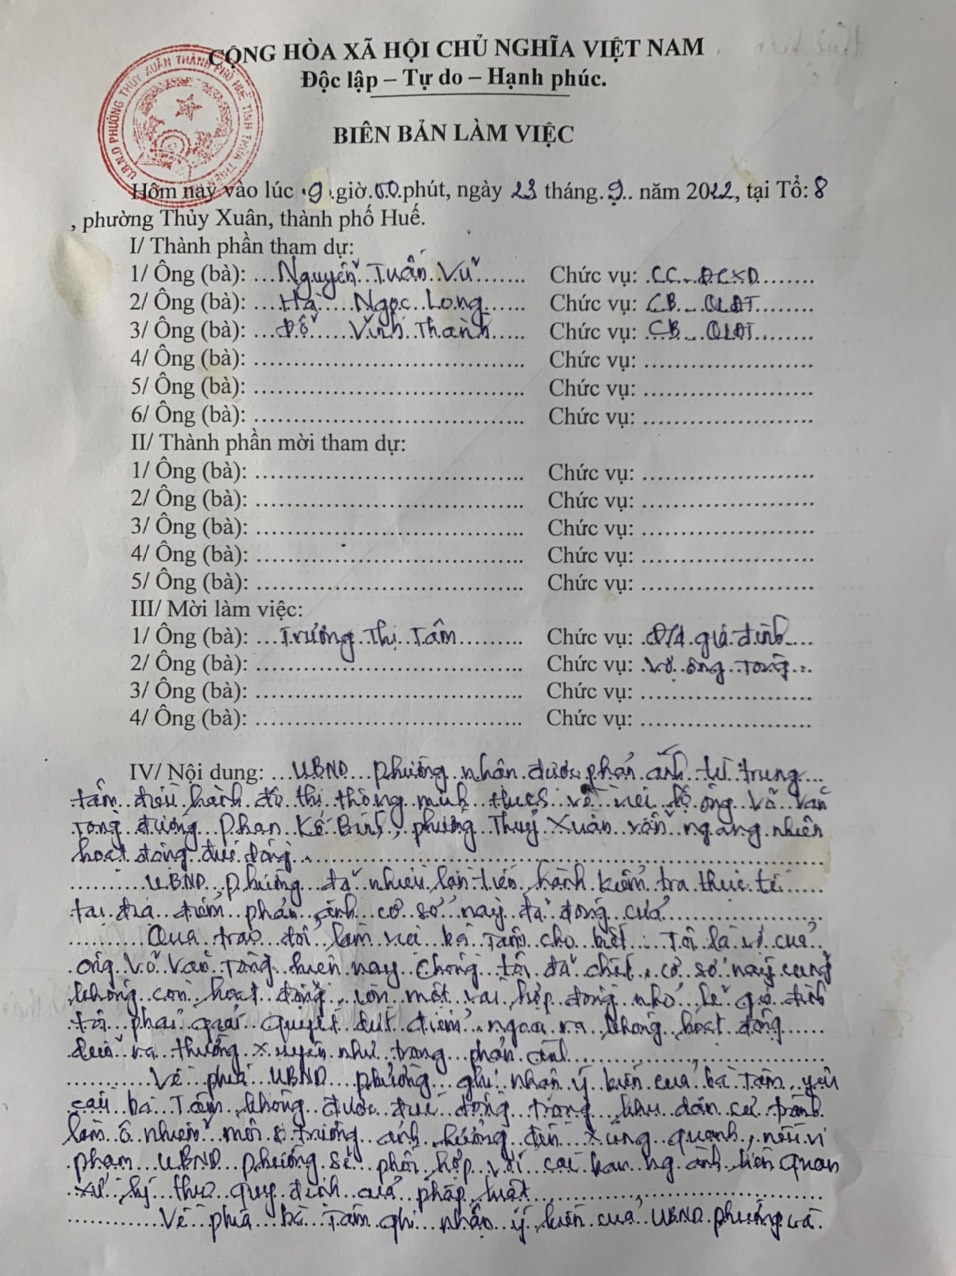 CỘNG HÒA XÃ HỘI CHỦ NGHĨA VIỆT NAM
Độc lập – Tự do – Hạnh phúc.
U.B.N.D PHƯỜNG THỦY XUÂN THÀNH PHỐ HUẾ TỈNH THỪA THIÊN
BIÊN BẢN LÀM VIỆC
Hôm nay vào lúc 9 giờ 00 phút, ngày 23 tháng 9 năm 2022, tại Tổ: 8
, phường Thủy Xuân, thành phố Huế.
I/ Thành phần tham dự:
1/ Ông (bà): Nguyễn Tuấn Vũ Chức vụ: CC ĐCXD
2/ Ông (bà): Hà Ngọc Long Chức vụ: CB QLĐT
3/ Ông (bà): Đỗ Vĩnh Thành Chức vụ: CB QLĐT
4/ Ông (bà): Chức vụ:
5/ Ông (bà): Chức vụ:
6/ Ông (bà): Chức vụ:
II/ Thành phần mời tham dự:
1/ Ông (bà): Chức vụ:
2/ Ông (bà): Chức vụ:
3/ Ông (bà): Chức vụ:
4/ Ông (bà): Chức vụ:
5/ Ông (bà): Chức vụ:
III/ Mời làm việc:
1/ Ông (bà): Trương Thị Tâm Chức vụ: Đ/d gia đình
2/ Ông (bà): Chức vụ: Vợ ông Tòng
3/ Ông (bà): Chức vụ:
4/ Ông (bà): Chức vụ:
IV/ Nội dung: UBND phường nhận được phản ánh từ trung
tâm điều hành đô thị thông minh về việc ông Võ Văn
Tòng đường Phan Kế Bính, phường Thuỷ Xuân vẫn ngang nhiên
hoạt động đúc đồng.
UBND phường đã nhiều lần tiến hành kiểm tra thực tế
tại địa điểm phản ánh cơ sở này đã đóng cửa
Qua trao đổi làm việc bà Tâm cho biết Tôi là vợ của
ông Võ Văn Tòng hiện nay chồng tôi đã chết, cơ sở này cũng
không còn hoạt động, còn một vài hợp đồng nhỏ lẻ gia đình
tôi phải giải quyết dứt điểm, ngoài ra không hoạt động
diễn ra thường xuyên như trong phản ánh
Về phía UBND phường ghi nhận ý kiến của bà Tâm, yêu
cầu bà Tâm không được đúc đồng trong khu dân cư tránh
làm ô nhiễm môi trường ảnh hưởng đến xung quanh, nếu vi
phạm UBND phường sẽ phối hợp với các ban ngành liên quan
xử lý theo quy định của pháp luật
Về phía bà Tâm ghi nhận ý kiến của UBND phường và